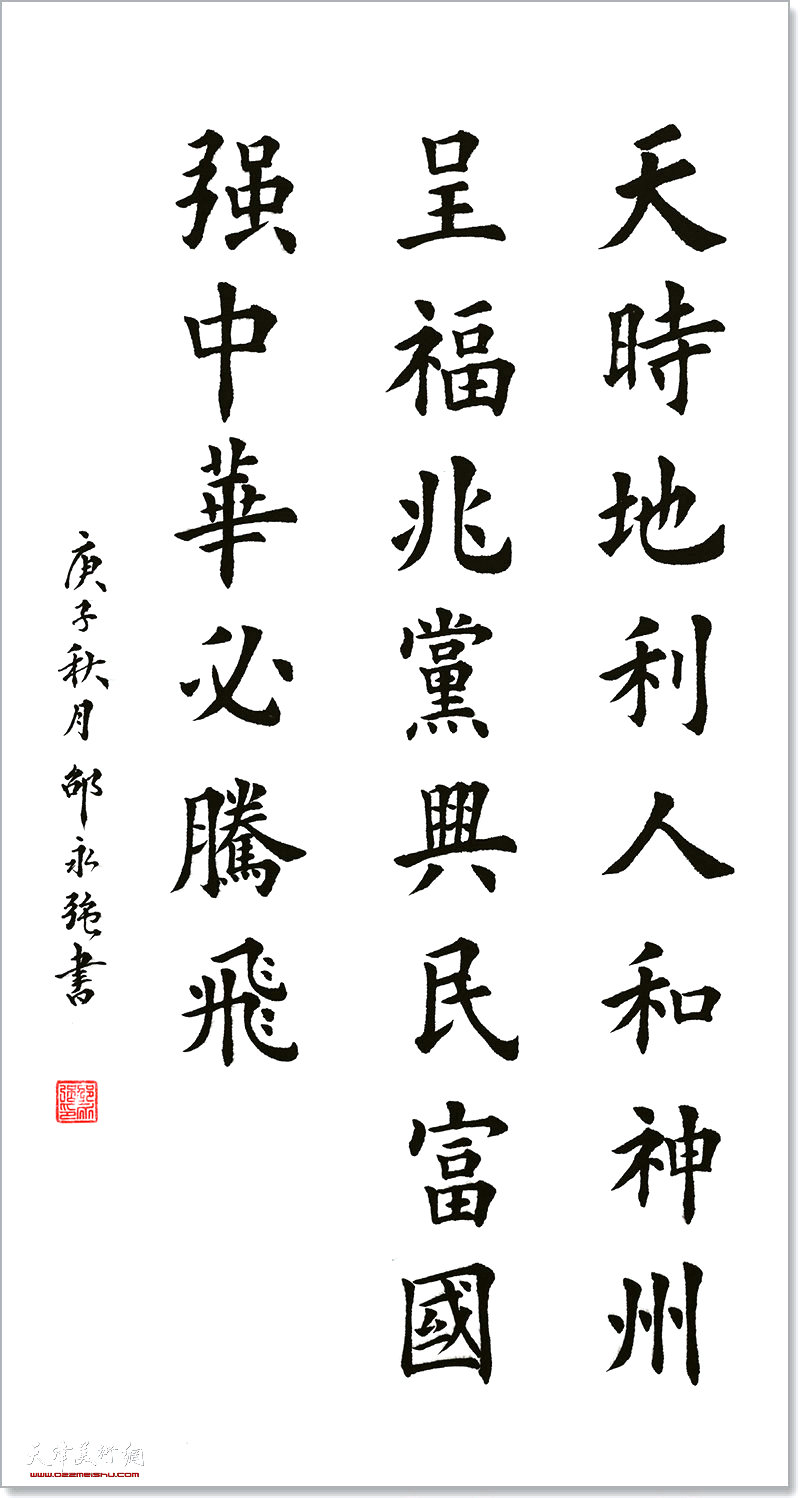 天時地利人和神州
呈福兆黨興民富國
强中華必騰飛
庚子秋月邵永强書
天津美術網
www.022meishu.com